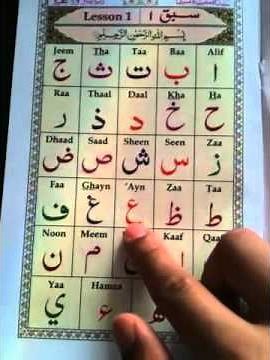 Lesson 1 سبق ۱
بسم الله الرحمن الرحيم
Jeem Tha Taa Baa Alif
ا ب ت ث ج
Raa Thaal Daal Kha Ha
ح خ د ذ ر
Dhaad Saad Sheen Seen Zaa
ز س ش ص ض
Faa Ghayn 'Ayn Zaa Taa
ط ظ ع غ ف
Noon Meem Kaaf
م ن
Yaa Hamza
ء ي